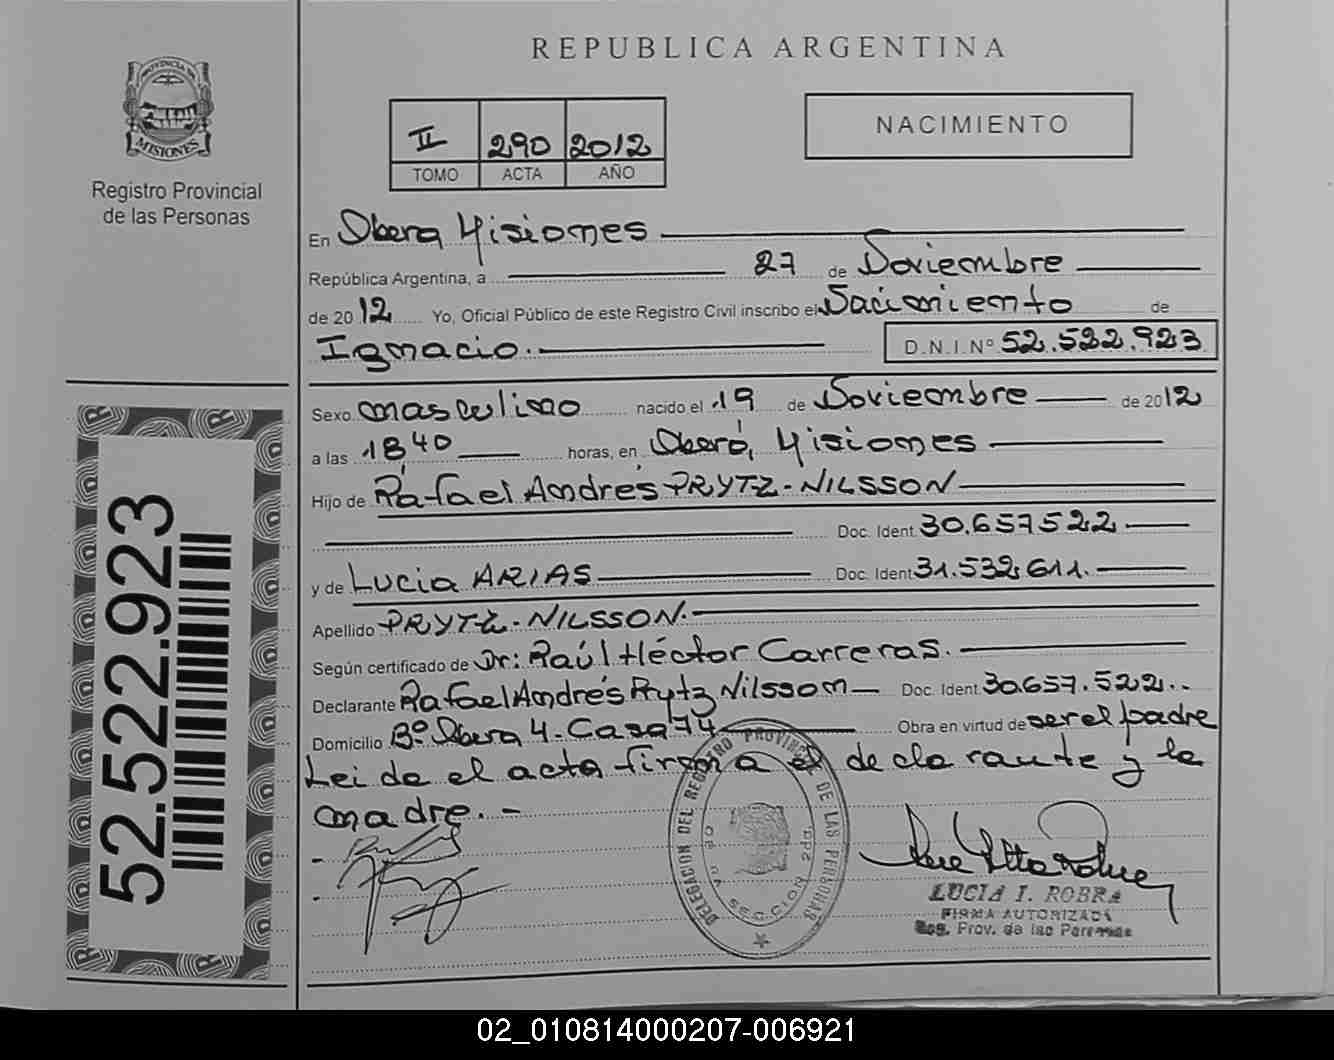 REPUBLICA ARGENTINA
PROVINCIA DE
MISIONES
Registro Provincial
de las Personas
II 290 2012
TOMO ACTA AÑO
NACIMIENTO
En Obera Misiones
República Argentina, a 27 de Noviembre
de 2012 Yo, Oficial Público de este Registro Civil inscribo el Nacimiento de
Ignacio.
D.N.I.Nº 52.522.923
Sexo masculino nacido el 19 de Noviembre de 2012
a las 1840 horas, en Oberá, Misiones
Hijo de Rafael Andrés PRYTZ-NILSSON
Doc. Ident. 30.657522
y de Lucia ARIAS Doc. Ident 31.532.611.
Apellido PRYTZ-NILSSON.
Según certificado de Dr: Raúl Héctor Carreras.
Declarante Rafael Andrés Prytz Nilsson Doc. Ident. 30.657.522..
Domicilio Bº Obera 4-Casa 74 Obra en virtud de ser el padre
Leida el acta firma el declarante y la
madre.-
52.522.923
DELEGACION DEL REGISTRO PROVINCIAL DE LAS PERSONAS
SECCION 2da
LUCIA I. ROBRA
FIRMA AUTORIZADA
Reg. Prov. de las Personas
02_010814000207-006921